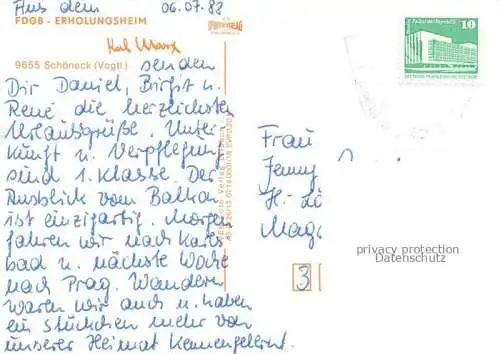 Aus dem 06.07.88
FDGB - ERHOLUNGSHEIM
Karl Marx
9655 Schöneck (Vogtl.) senden
Dir Daniel, Birgit u.
René die herzlichsten
Urlaubsgrüße. Unter
kunft u. Verpflegung
sind 1. Klasse. Der
Ausblick vom Balkon
ist einzigartig. Morgen
fahren wir nach Karls
bad u. nächste Woche
nach Prag. Wandern
waren wir auch u. haben
ein Stückchen mehr von
unserer Heimat kennengelernt.
10
Frau
Jenny
H.-
Mag
3
privacy protection
Datenschutz